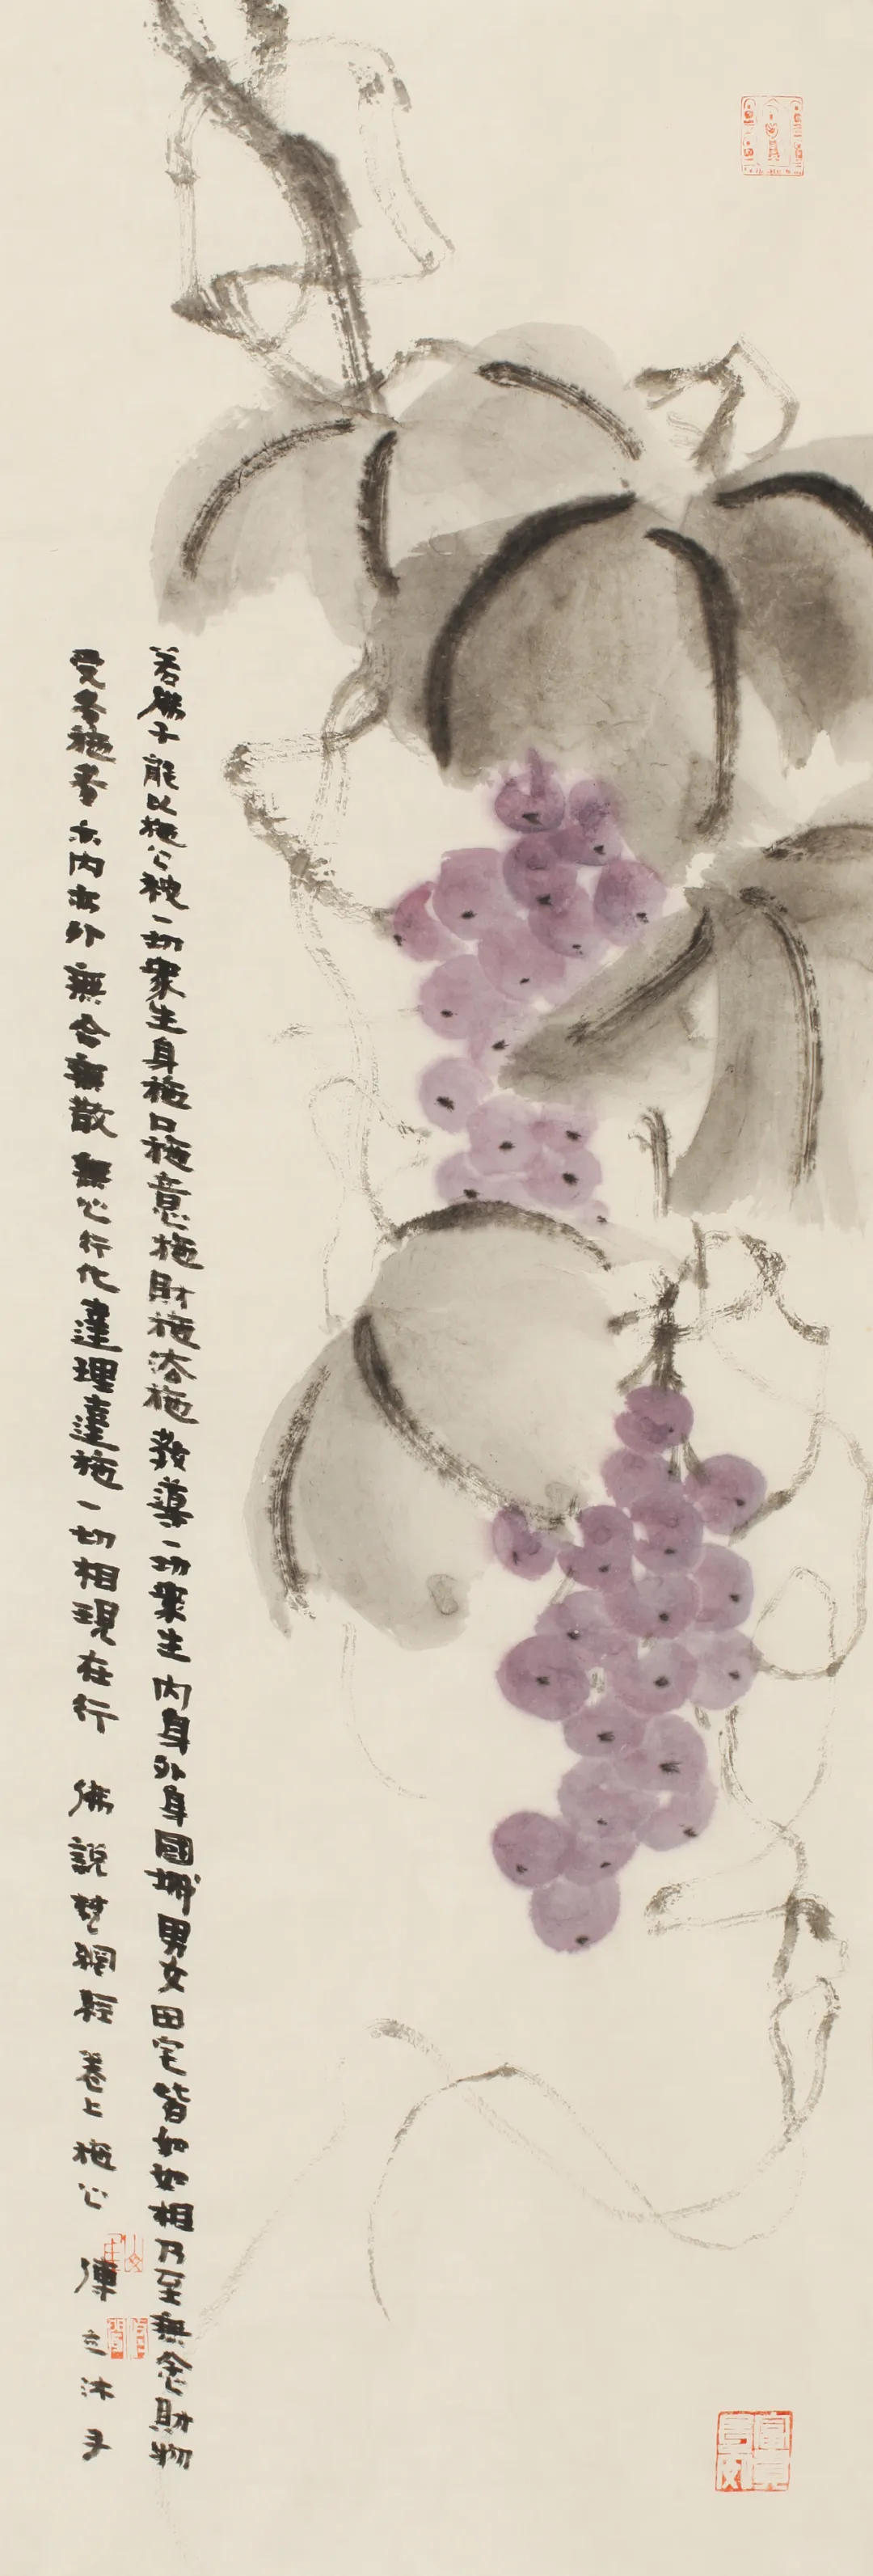 若佛子能以施心被一切眾生身施口施意施財施法施教導一切眾生內身外身國城男女田宅皆如如相乃至無念財物
受者施者亦內亦外無合無散無心行化達理達施一切相現在行 佛說梵網經 卷上 施心